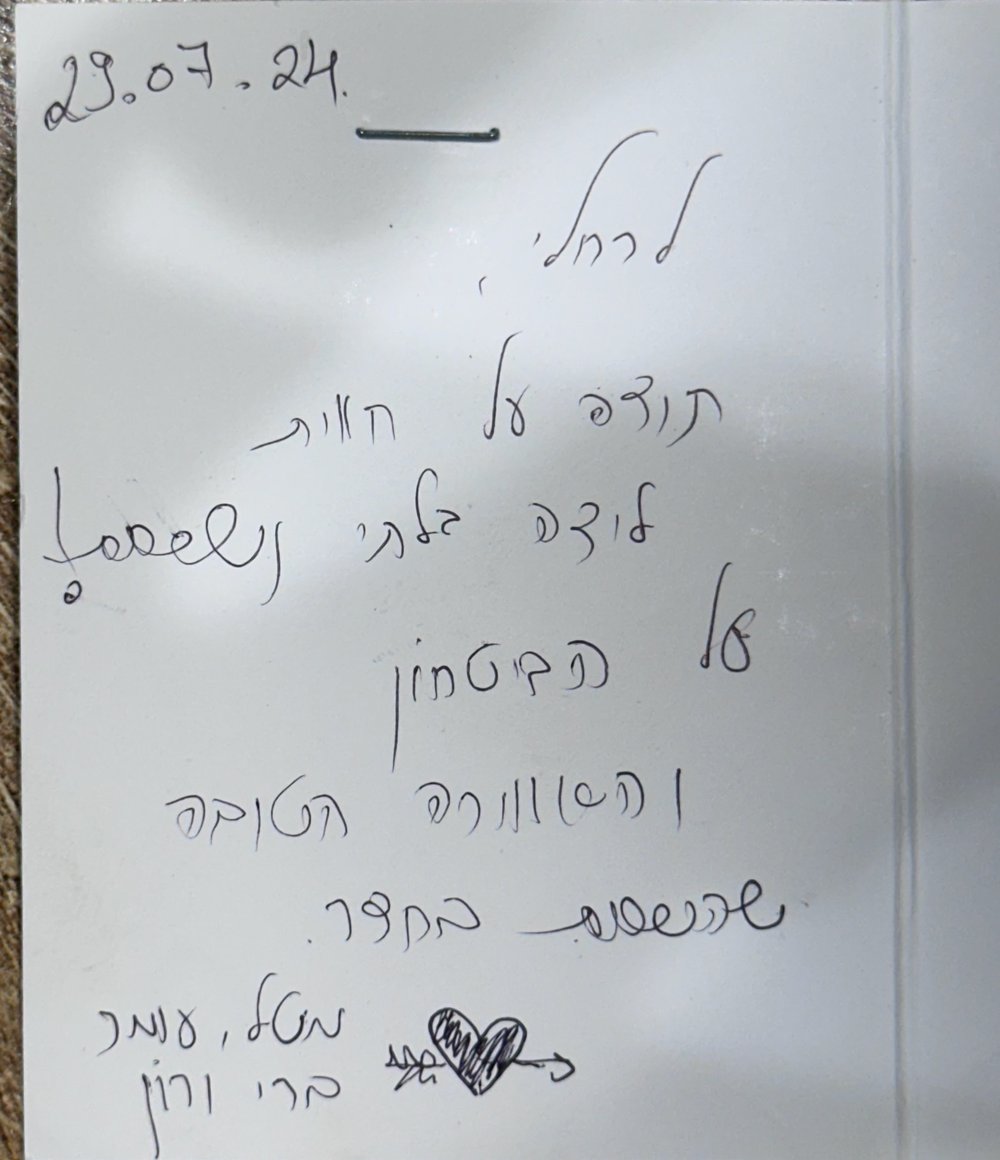 29.07.24.
לרחלי,
תודה על חווית
לידה בלתי נשכחת!
על הביטחון
והאווירה הטובה
שהשכנת בחדר.
מיטל, עומר
ברי ורון